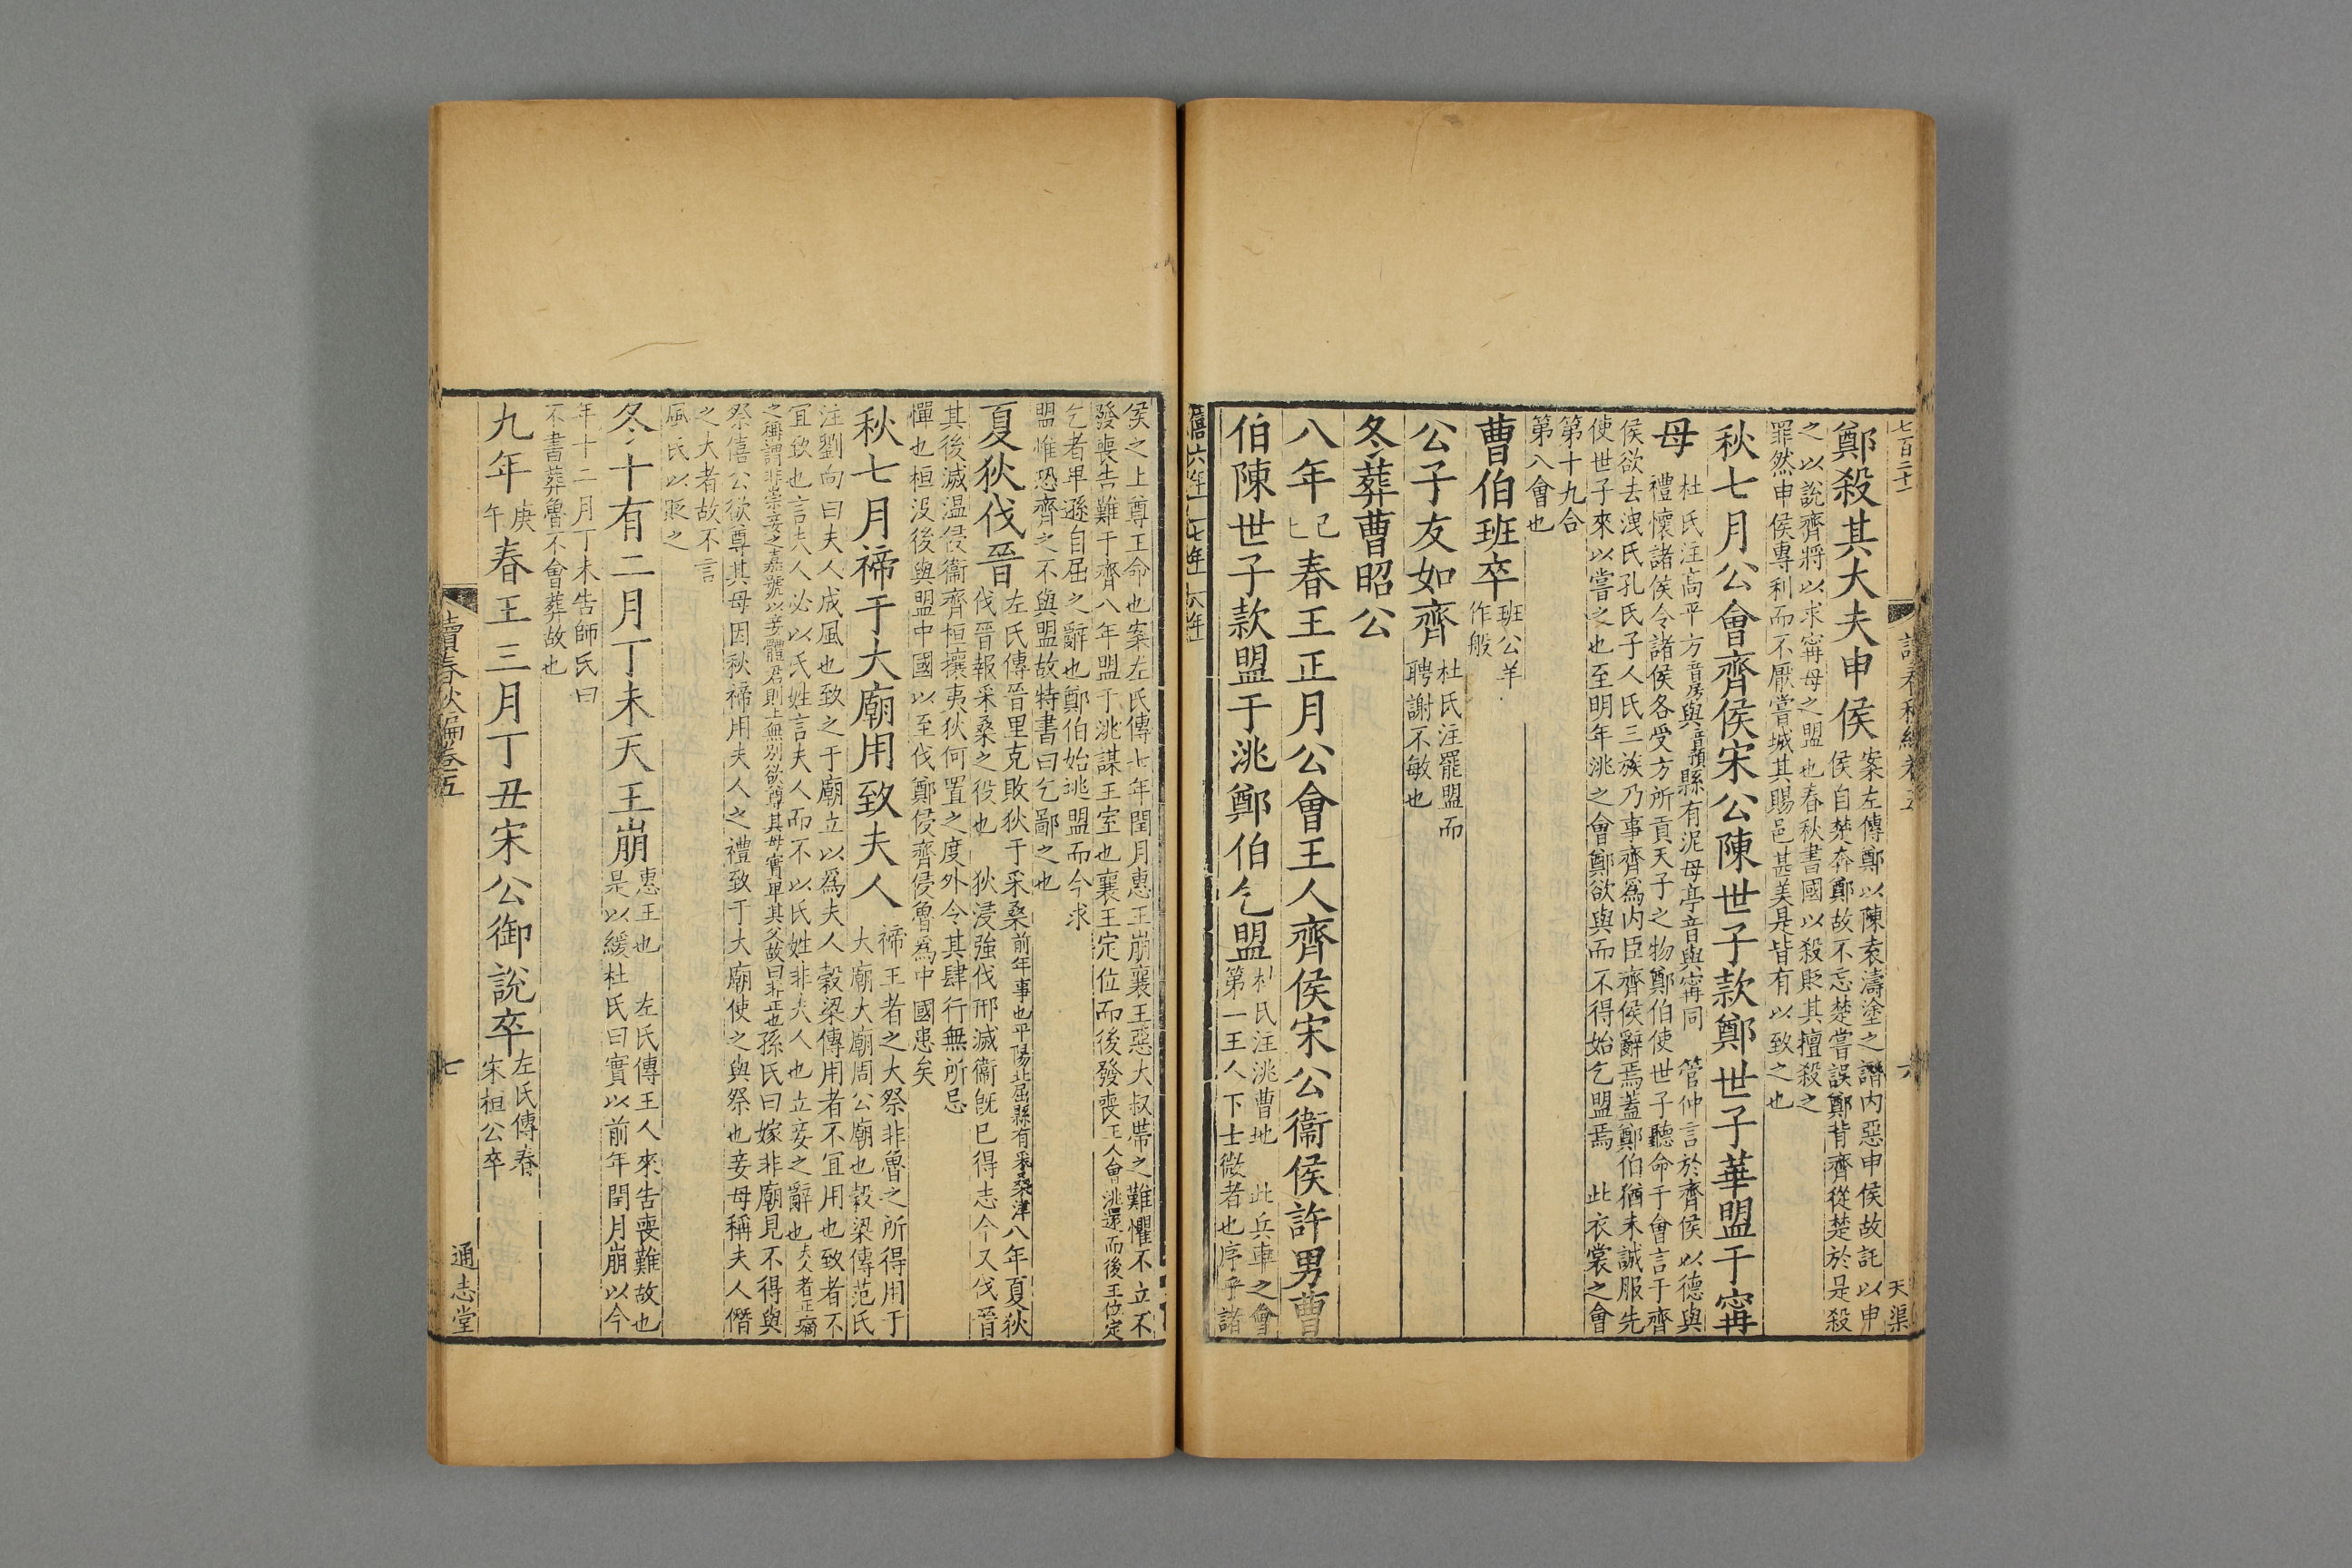 七百二十一
鄭殺其大夫申侯
案左傳鄭以陳袁濤塗之譖內惡申侯故託以申
侯自楚奔鄭故不忘楚嘗誤鄭背齊從楚於是殺
之以說齊將以求甯母之盟也春秋書國以殺貶其擅殺之
罪然申侯專利而不厭嘗城其賜邑甚美是皆有以致之也
秋七月公會齊侯宋公陳世子款鄭世子華盟于甯
母
杜氏注高平方音房與音預縣有泥母亭音與甯同 管仲言於齊侯以德與
禮懷諸侯令諸侯各受方所貢天子之物鄭伯使世子聽命于會言于齊
侯欲去洩氏孔氏子人氏三族乃事齊為內臣齊侯辭焉蓋鄭伯猶未誠服先
使世子來以嘗之也至明年洮之會鄭欲與而不得始乞盟焉 此衣裳之會
第十九合
第八會也
曹伯班卒
班公羊
作般
公子友如齊
杜氏注罷盟而
聘謝不敏也
冬葬曹昭公
八年己巳春王正月公會王人齊侯宋公衞侯許男曹
伯陳世子款盟于洮鄭伯乞盟
杜氏注洮曹地 此兵車之會
第一王人下士微者也序乎諸
僖六年 七年 八年
侯之上尊王命也案左氏傳七年閏月惠王崩襄王惡大叔帶之難懼不立不
發喪告難于齊八年盟于洮謀王室也襄王定位而後發喪王人會洮還而後王位定
乞者卑遜自屈之辭也鄭伯始逃盟而今求
盟惟恐齊之不與盟故特書曰乞鄙之也
夏狄伐晉
左氏傳晉里克敗狄于采桑前年事也平陽北屈縣有采桑津八年夏狄
伐晉報采桑之役也 狄浸強伐邢滅衞旣已得志今又伐晉
其後滅温侵衞齊桓攘夷狄何置之度外令其肆行無所忌
憚也桓沒後與盟中國以至伐鄭侵齊侵魯爲中國患矣
秋七月禘于大廟用致夫人
禘王者之大祭非魯之所得用于
大廟大廟周公廟也穀梁傳范氏
注劉向曰夫人成風也致之于廟立以爲夫人穀梁傳用者不宜用也致者不
宜致也言夫人必以氏姓言夫人而不以氏姓非夫人也立妾之辭也夫人者正嫡
之稱謂非崇妾之嘉號以妾體君則上無別欲尊其母實卑其父故曰非正也孫氏曰嫁非廟見不得與
祭僖公欲尊其母因秋禘用夫人之禮致于大廟使之與祭也妾母稱夫人僭
之大者故不言
風氏以貶之
冬十有二月丁未天王崩
惠王也 左氏傳王人來告喪難故也
是以緩杜氏曰實以前年閏月崩以今
年十二月丁未告師氏曰
不書葬魯不會葬故也
九年庚午春王三月丁丑宋公御說卒
左氏傳春
宋桓公卒
讀春秋編卷五
七
通志堂